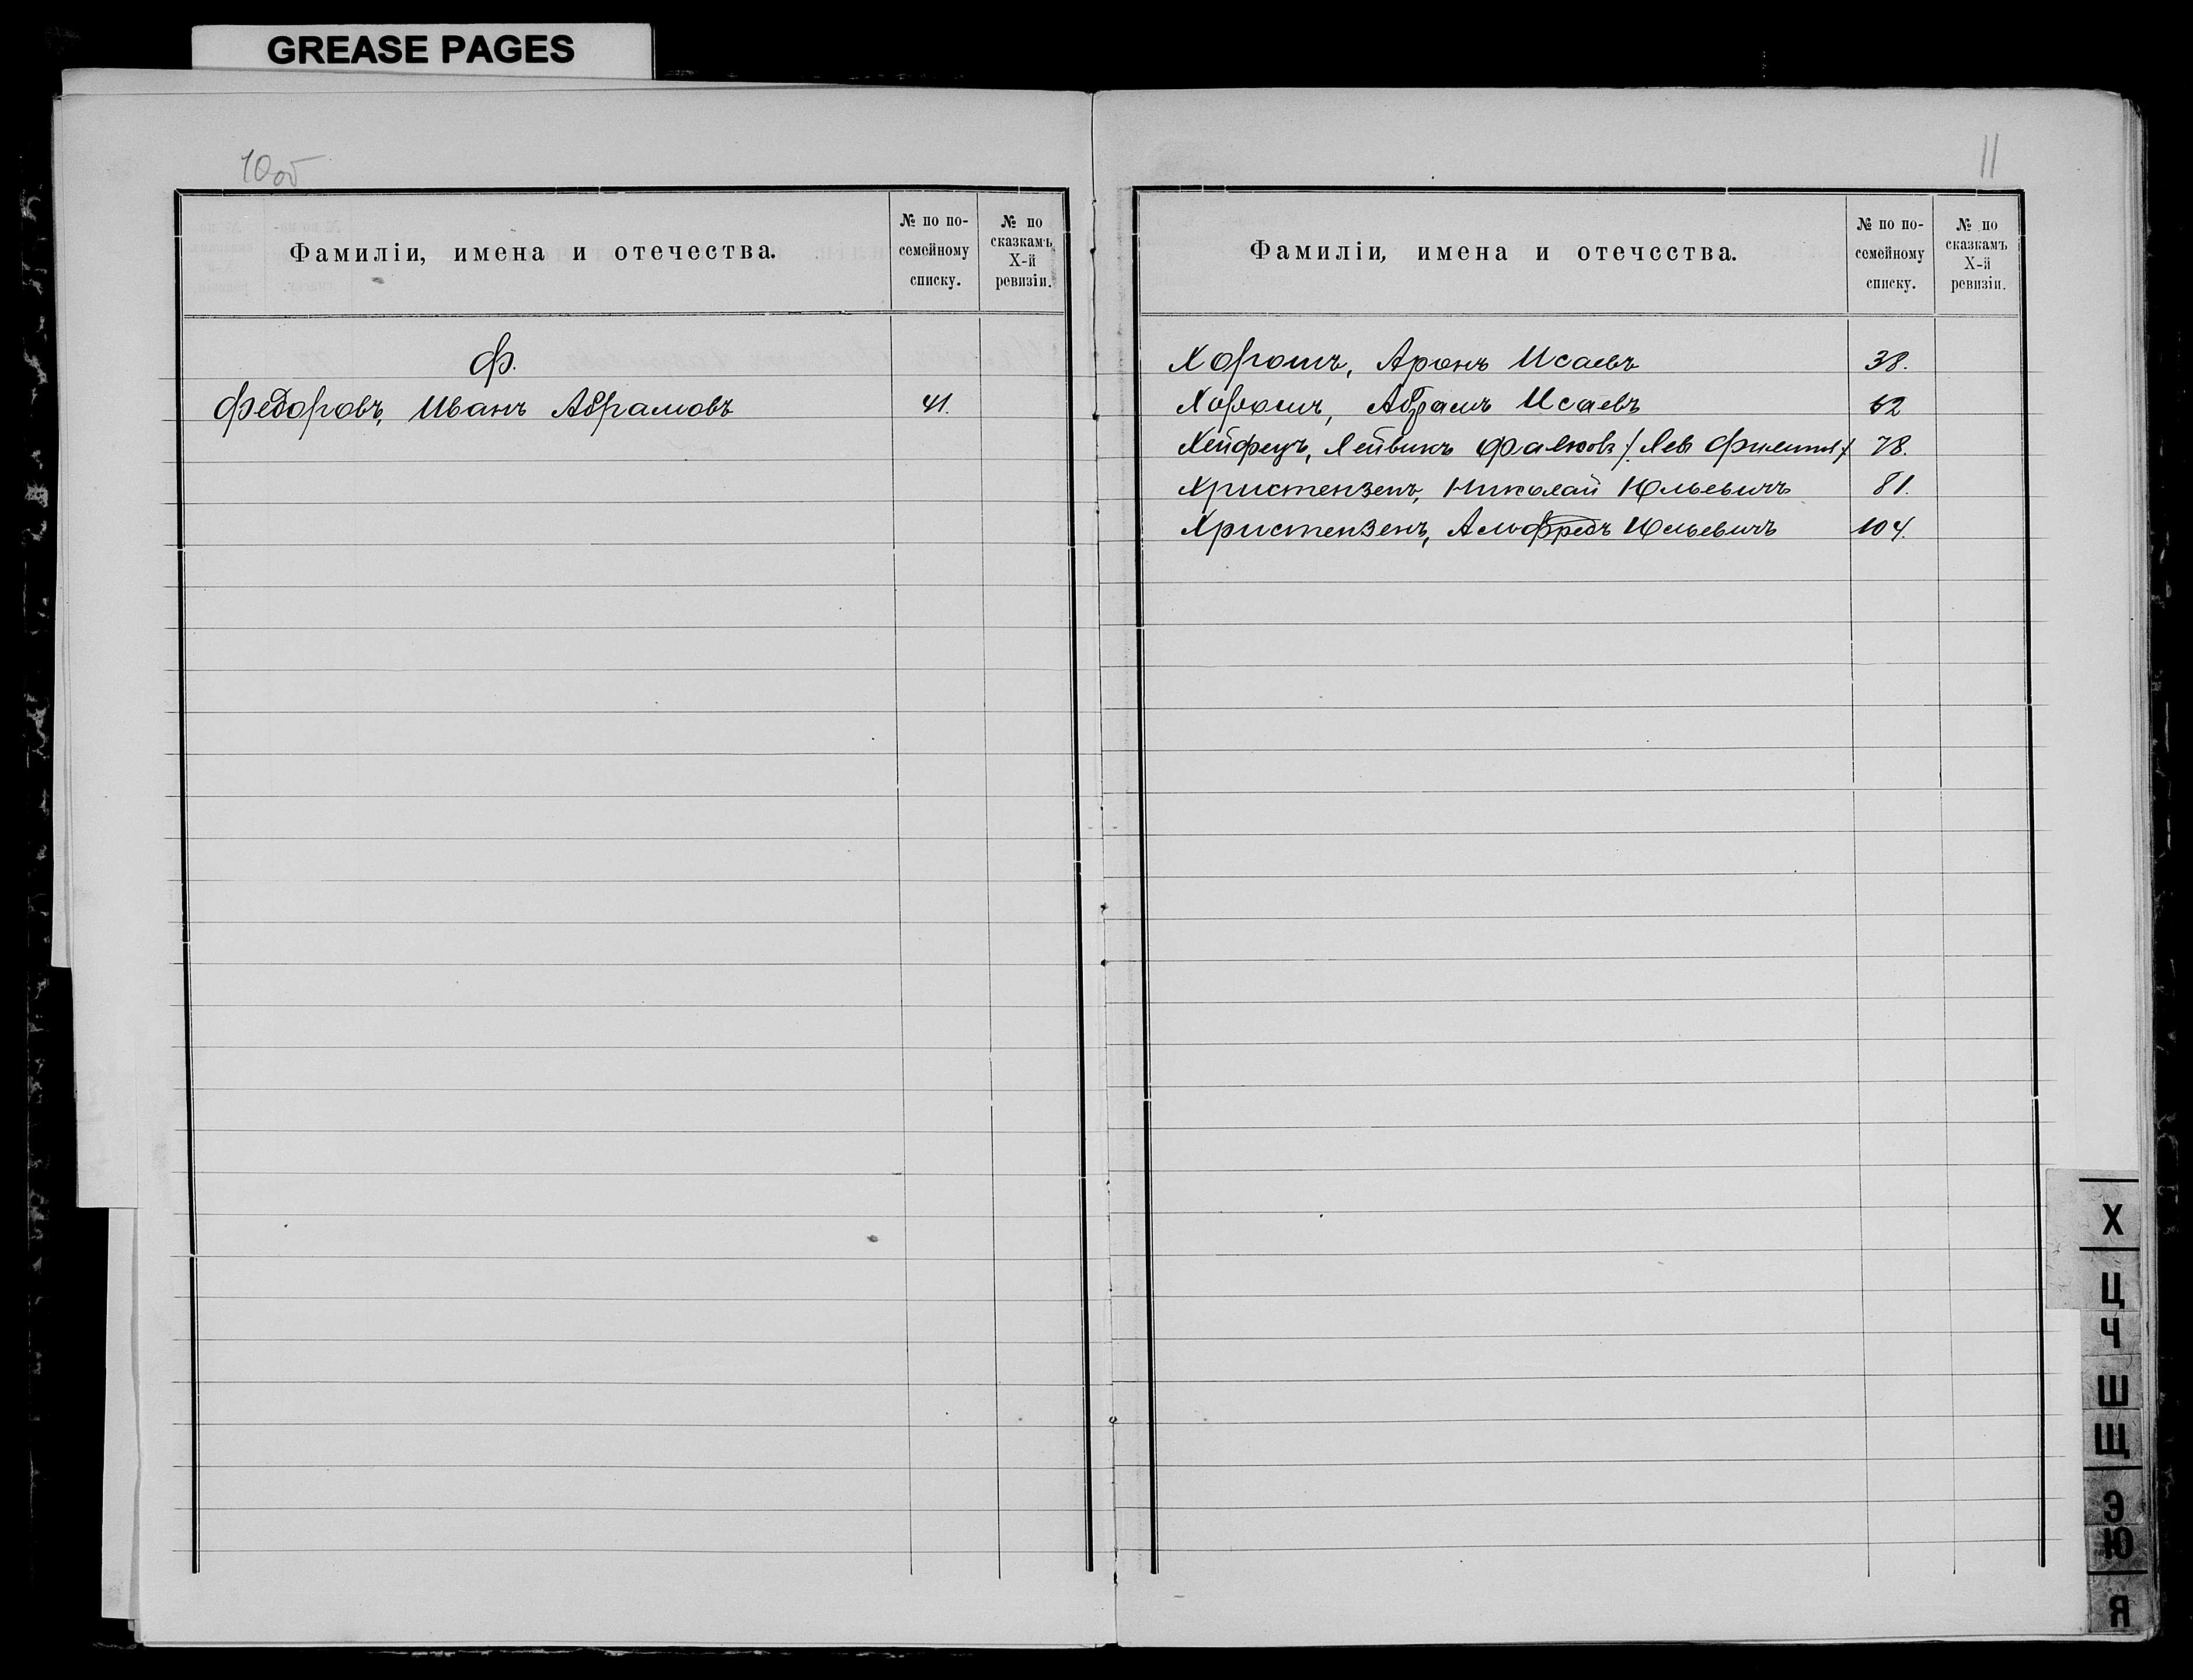 GREASE PAGES
10об
Фамиліи, имена и отечества.
№ по по-
семейному
списку.
№ по
сказкамъ
X-й
ревизіи.
Ф.
Федоровъ, Иванъ Абрамовъ 41.
11
Фамиліи, имена и отечества.
№ по по-
семейному
списку.
№ по
сказкамъ
X-й
ревизіи.
Хорошъ, Аронъ Исаевъ 38.
Хорошъ, Абрамъ Исаевъ 62
Хейфецъ, Лейвикъ Фалковъ /: Левъ :/ 78.
Христензенъ, Николай Юльевичъ 81.
Христензенъ, Альфредъ Юльевичъ 104.
Х
Ц
Ч
Ш
Щ
Э
Ю
Я